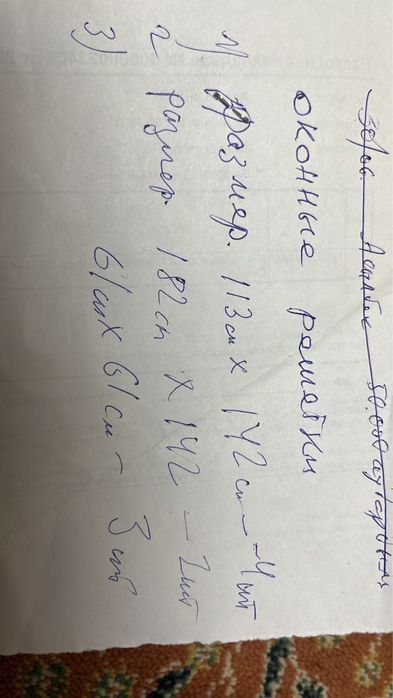 30/06. 50.000
оконные решетки
1) размер. 113см х 142см - 4шт
2 размер. 182см х 142 - 2шт
3) 61см х 61см - 3шт